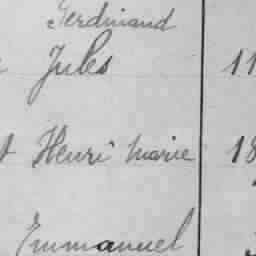 Ferdinand
Jules 11
t Henri Marie 18
Emmanuel